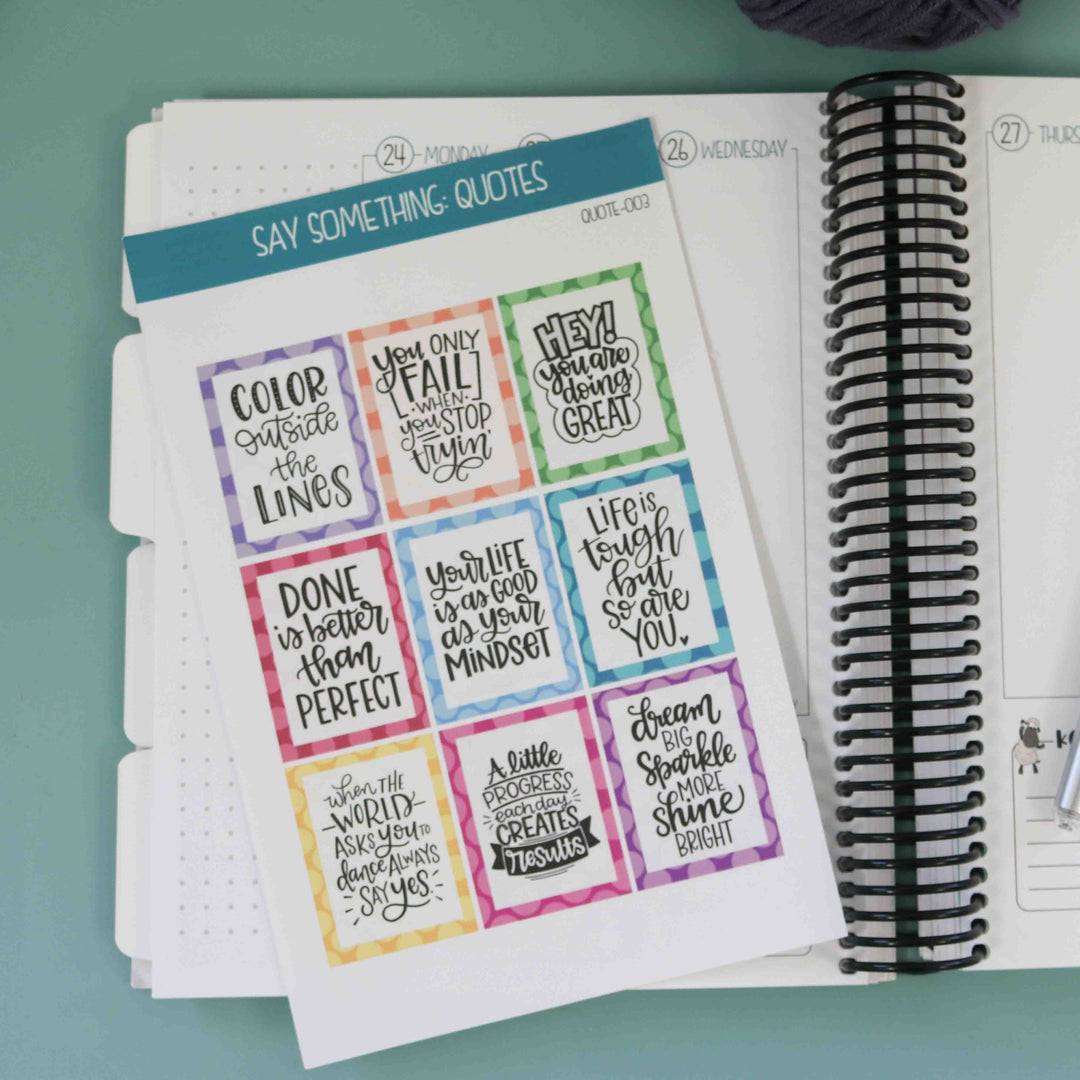 24 MONDAY
26 WEDNESDAY
27 THURS
SAY SOMETHING: QUOTES
QUOTE-003
COLOR
outside
the
LINES
You ONLY
FAIL
WHEN
you STOP
tryin'
HEY!
you are
doing
GREAT
DONE
is better
than
PERFECT
your LIFE
is as GOOD
as your
MINDSET
LIFE is
tough
but
so are
YOU
when THE
WORLD
ASKS you TO
dance ALWAYS
SAY yes.
A little
PROGRESS
each day
CREATES
results
dream
BIG
Sparkle
MORE
Shine
BRIGHT